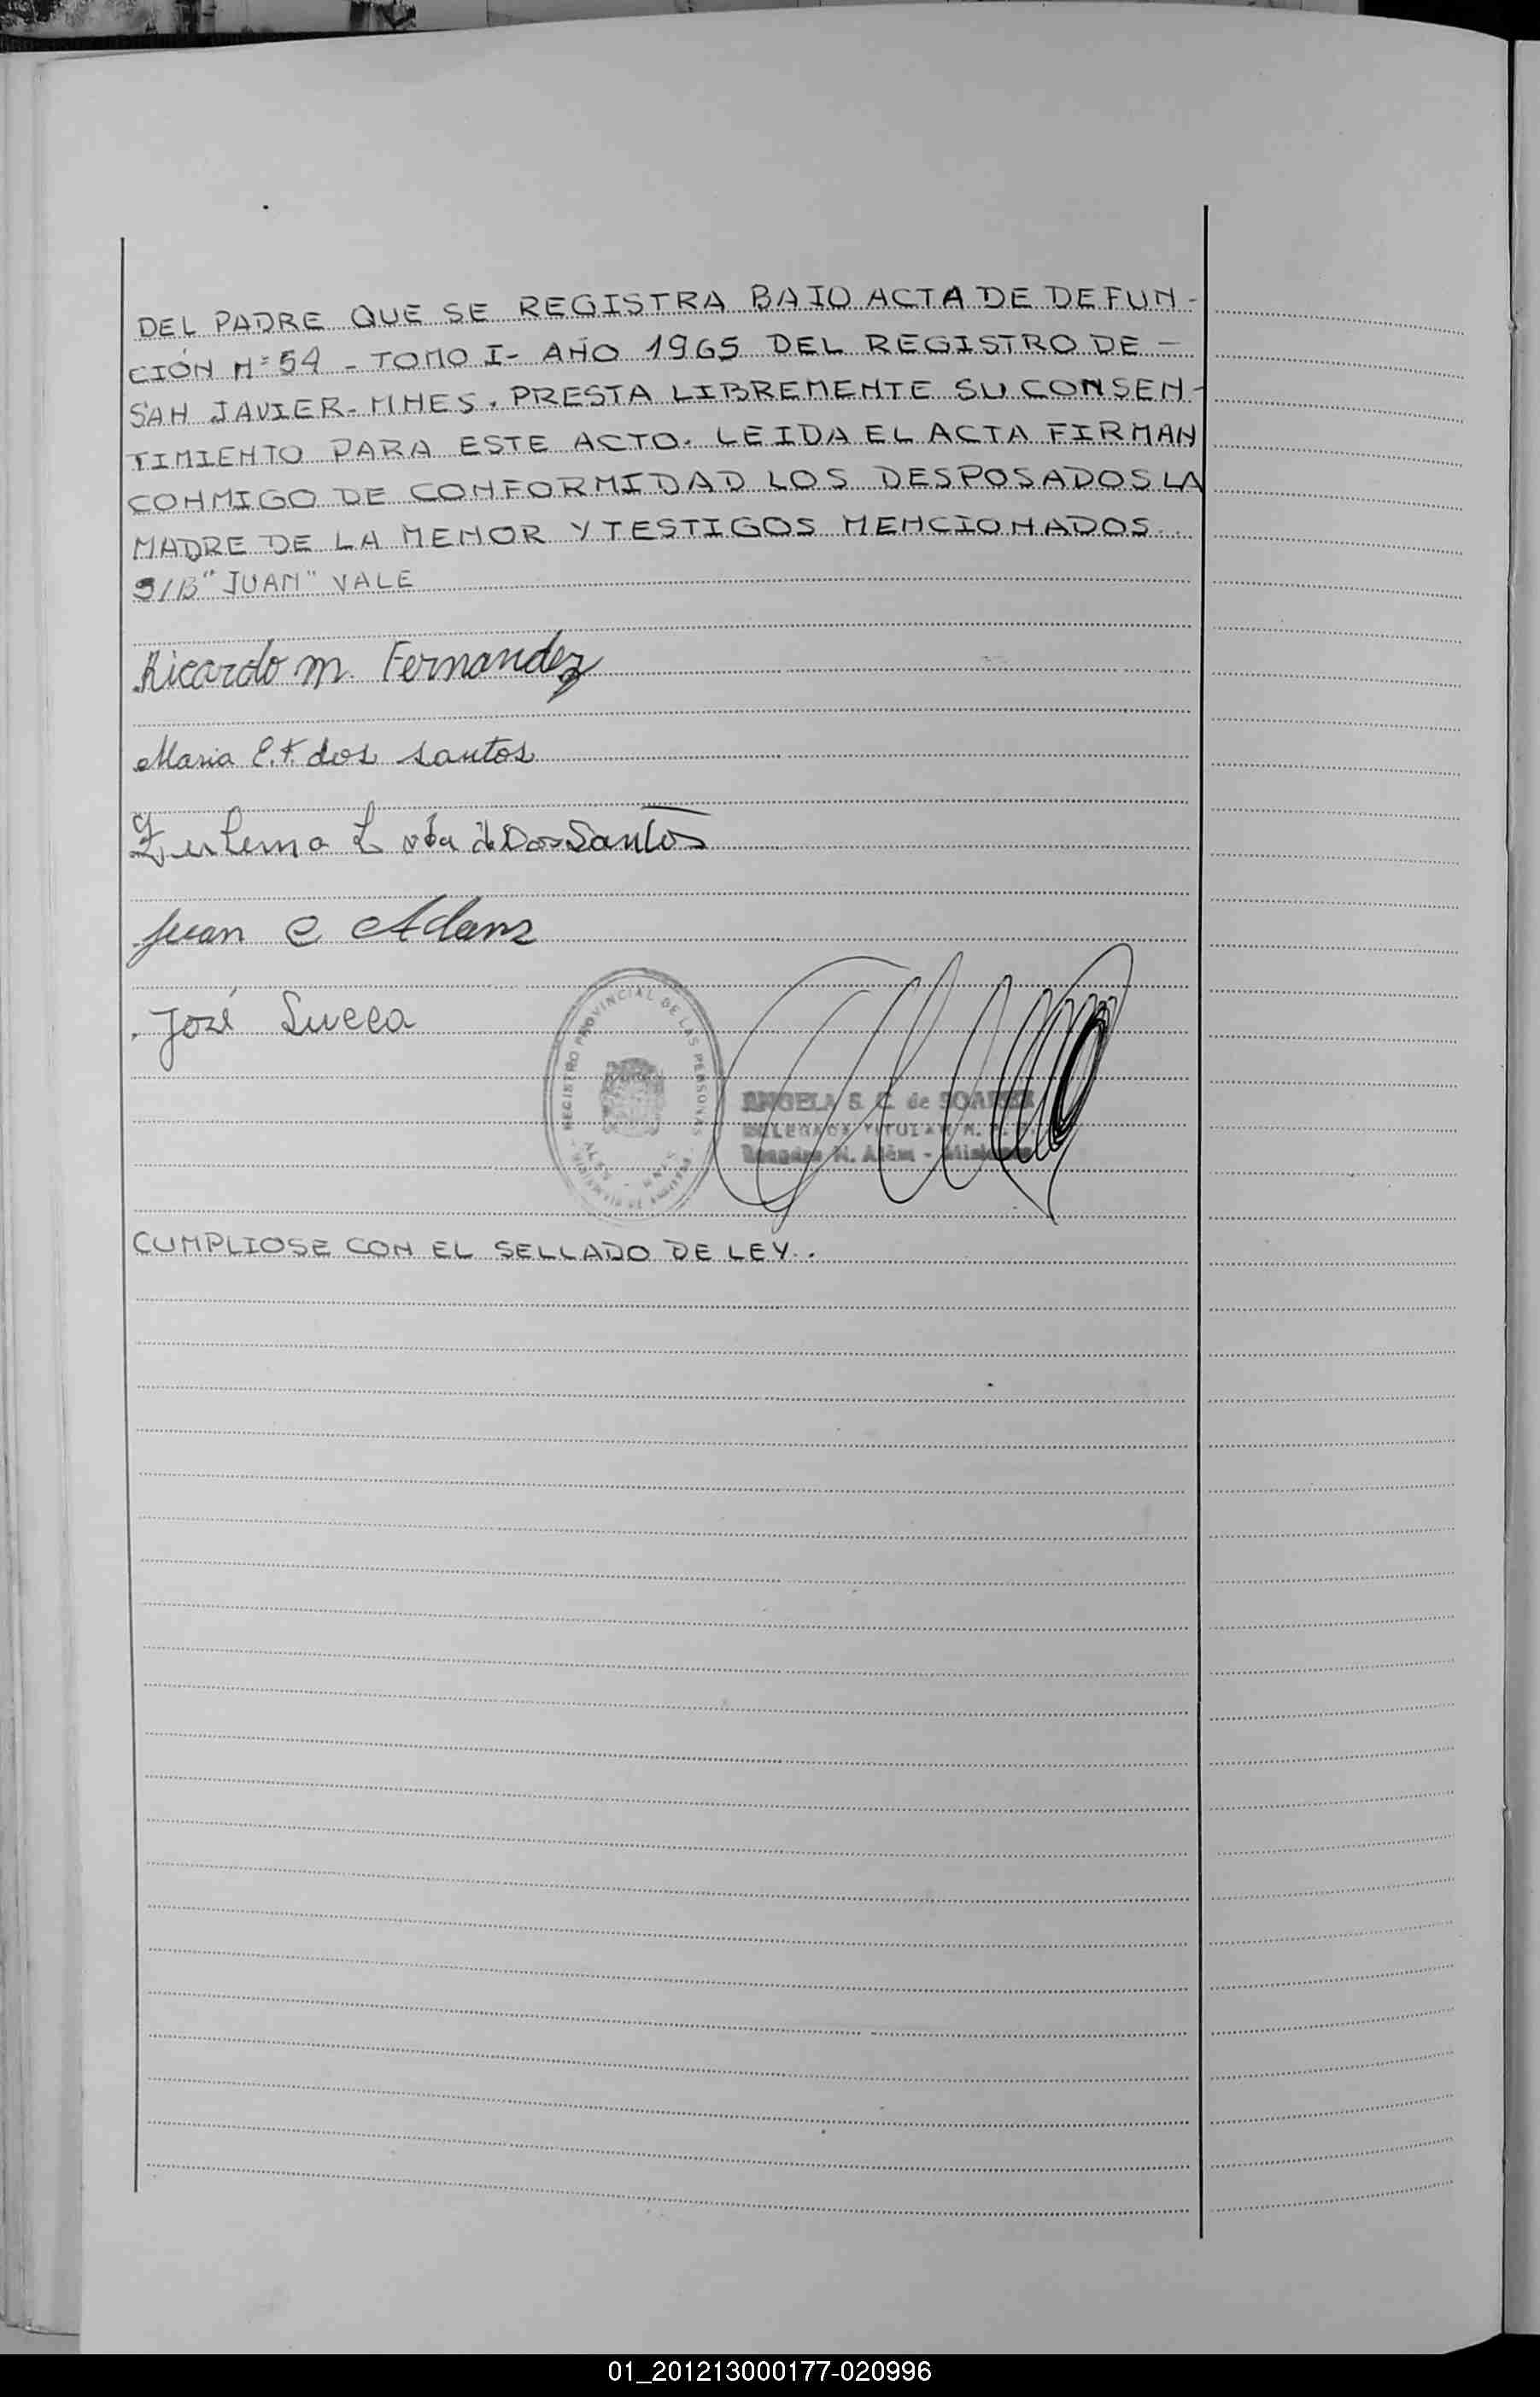 DEL PADRE QUE SE REGISTRA BAJO ACTA DE DEFUN-
CIÓN Nº 54 - TOMO I- AÑO 1965 DEL REGISTRO DE -
SAN JAVIER- MNES. PRESTA LIBREMENTE SU CONSEN-
TIMIENTO PARA ESTE ACTO. LEIDA EL ACTA FIRMAN
CONMIGO DE CONFORMIDAD LOS DESPOSADOS LA
MADRE DE LA MENOR Y TESTIGOS MENCIONADOS..
S/B "JUAN" VALE
Ricardo M. Fernandez
Maria E.F. dos santos
Dos Santos
Juan C
José
REGISTRO PROVINCIAL DE LAS PERSONAS
ANGELA S. C. de SOARES
DELEGADA TITULAR
N. Além - Misiones
CUMPLIOSE CON EL SELLADO DE LEY..
01_201213000177-020996